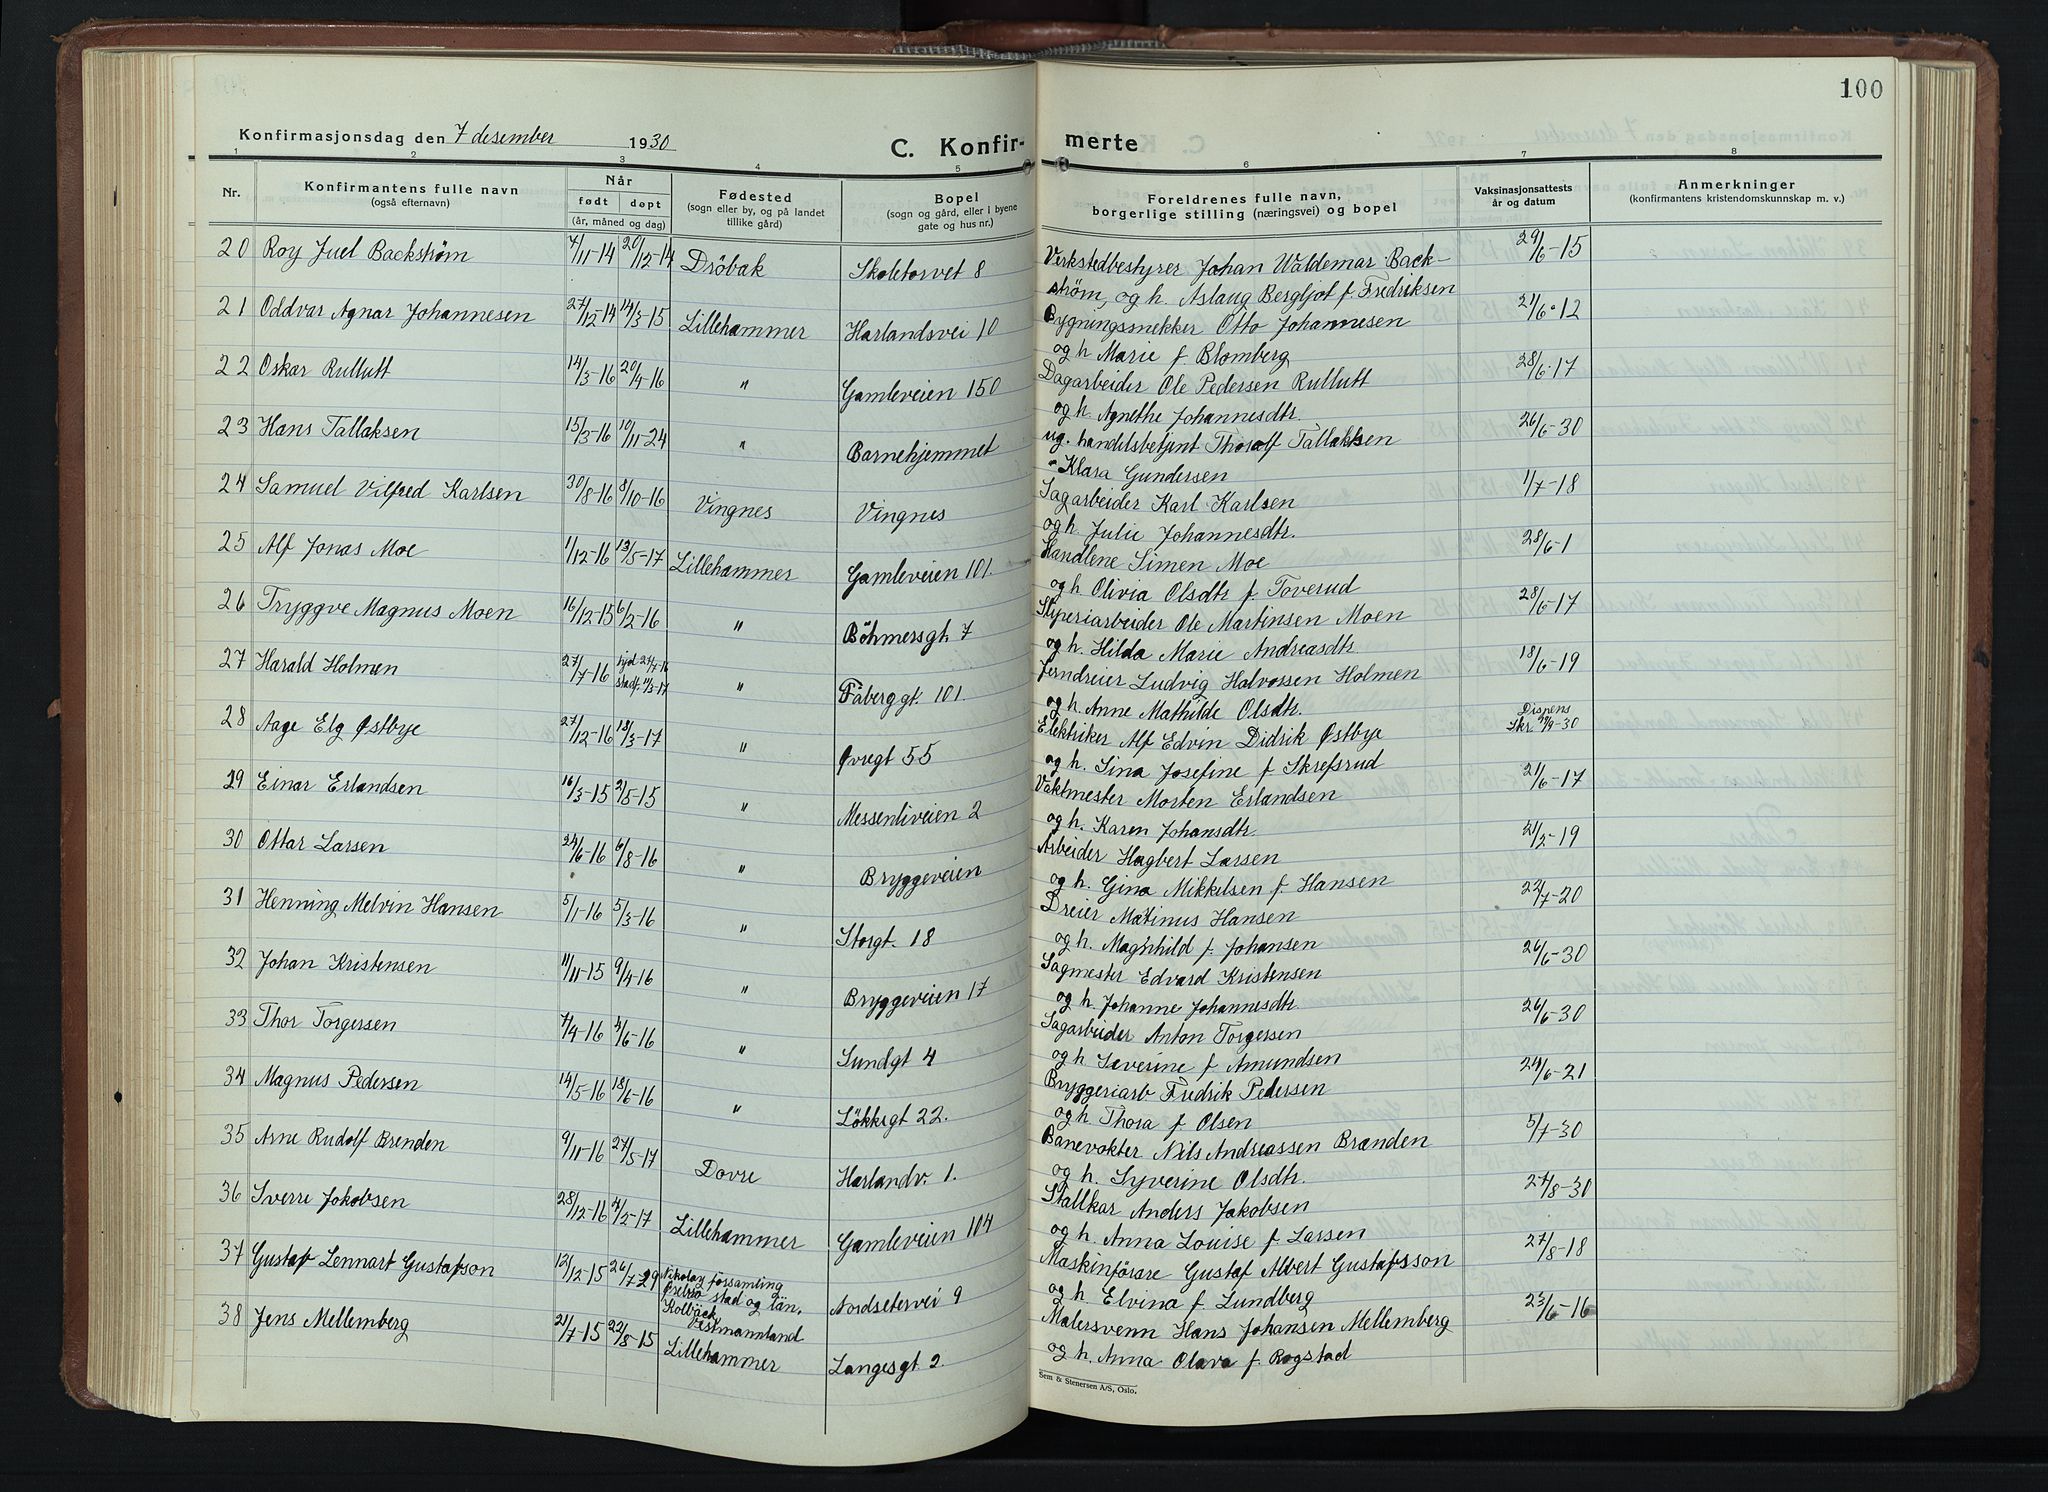 100
Konfirmasjonsdag den 7 desember 1930
C. Konfir-
merte
1 2 3 4 5 6 7 8
Nr.
Konfirmantens fulle navn
(også efternavn)
Når
født døpt
(år, måned og dag)
Fødested
(sogn eller by, og på landet
tillike gård)
Bopel
(sogn og gård, eller i byene
gate og hus nr.)
Foreldrenes fulle navn,
borgerlige stilling (næringsvei) og bopel
Vaksinasjonsattests
år og datum
Anmerkninger
(konfirmantens kristendomskunnskap m. v.)
20 Roy Juel Backstrøm 7/11-14 20/12-14 Dröbak Skoletorvet 8 Verkstedbestyrer Johan Waldemar Back- 29/6-15
strøm, og h. Aslaug Bergljot f. Fredriksen
21 Oddvar Agnar Johannesen 27/12-14 14/3-15 Lillehammer Harlandsvei 10 Bygningssnekker Otto Johannesen 21/6-12
og h Marie f Blomberg
22 Oskar Rullutt 14/3-16 20/4-16 " Gamleveien 150 Dagarbeider Ole Pedersen Rullutt 28/6-17
og h. Agnethe Johannesdtr.
23 Hans Tallaksen 15/3-16 10/11-24 " Barnehjemmet ug. handelsbetjent Thoralf Tallaksen 26/6-30
" Klara Gundersen
24 Samuel Vilfred Karlsen 30/8-16 8/10-16 Vingnes Vingnes Sagarbeider Karl Karlsen 1/7-18
og h. Julie Johannesdtr.
25 Alf Jonas Moe 1/12-16 13/5-17 Lillehammer Gamleveien 101. Handlene Simen Moe 28/6-1
og h. Olivia Olsdtr f. Toverud
26 Tryggve Magnus Moen 16/12-15 6/2-16 " Böhmersgt 7 Styperiarbeider Ole Martinsen Moen 28/6-17
og h. Hilda Marie Andreasdtr.
27 Harald Holmen 27/7-16 hjd 27/7-16 stadf. 11/3-17 " Fåberggt. 101. Jerndreier Ludvig Halvorsen Holmen 18/6-19
og h. Anne Mathilde Olsdtr.
28 Aage Elg Østbye 27/12-16 18/3-17 " Øvregt 55 Elektriker Alf Edvin Didrik Østbye Dispens
Skr. /9-30
og h. Sina Josefine f Skrefsrud
29 Einar Erlandsen 16/3-15 2/5-15 " Messenliveien 2 Vaktmester Morten Erlandsen 21/6-17
og h. Karen Johansdtr.
30 Ottar Larsen 24/6-16 6/8-16 " Bryggeveien Arbeider Hagbert Larsen 21/2-19
og h. Gina Mikkelsen f. Hansen
31 Henning Melvin Hansen 5/1-16 5/3-16 " Storgt. 18 Dreier Matinus Hansen 22/7-20
og h. Magnhild f. Johansen
32 Johan Kristensen 11/11-15 9/4-16 " Bryggeveien 17 Sagmester Edvard Kristensen 26/6-30
og h. Johanne Johannesdtr.
33 Thor Torgersen 7/4-16 4/6-16 " Sundgt 4 Sagarbeider Anton Torgersen 26/6-30
og h Severine f Amundsen
34 Magnus Pedersen 14/5-16 18/6-16 " Løkkegt 22. Bryggeriarb Fredrik Pedersen 24/6-21
og h Thora f. Olsen
35 Arne Rudolf Brenden 9/11-16 27/5-17 Dovre Harlandv. 1. Banevokter Nils Andreassen Brænden 5/7-30
og h. Syverine Olsdtr.
36 Sverre Jakobsen 28/12-16 4/2-17 Lillehammer Gamleveien 104 Stallkar Anders Jakobsen 27/8-30
og h. Anna Louise f. Larsen
37 Gustaf Lennart Gustafson 12/12-15 26/7-29 Nikolay forsamling
Örebro stad og län,
Kolbäck
Vestmannland Nordsetervei 9 Maskinförare Gustaf Albert Gustafsson 27/8-18
og h. Elvina f. Lundberg
38 Jens Mellemberg 21/7-15 22/8-15 Lillehammer Langesgt 2. Malersvenn Hans Johansen Mellemberg 23/6-16
og h. Anna Olava f. Rogstad
Sem & Stenersen A/S, Oslo.